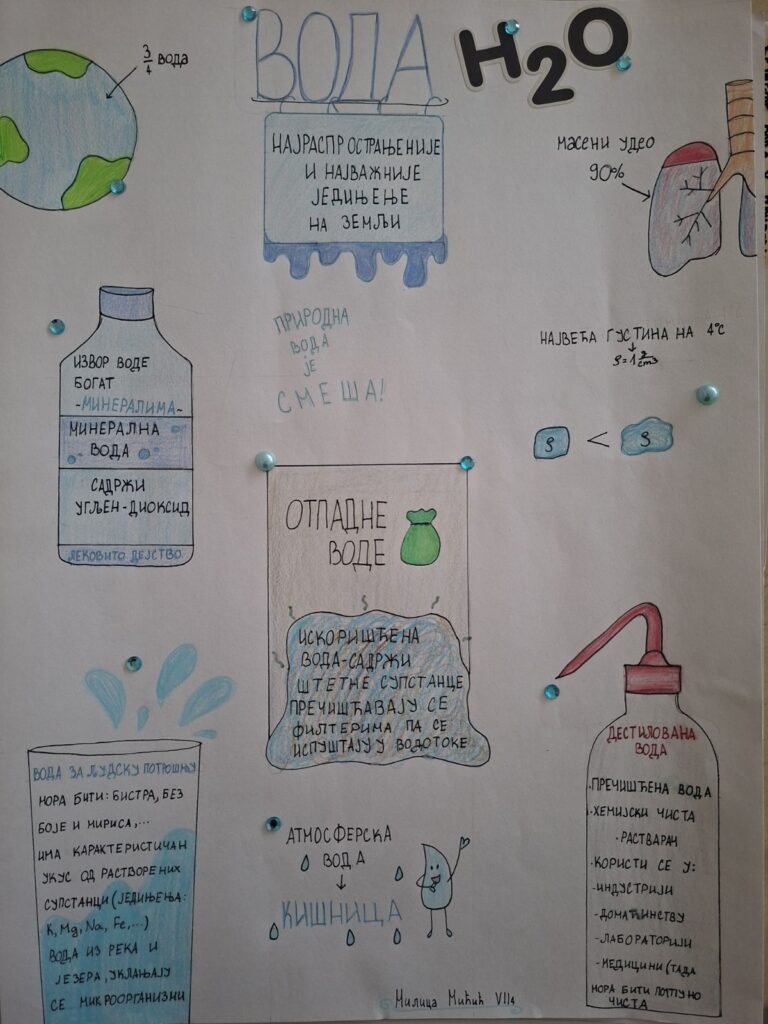 ВОДА
H2O
3/4 вода
НАЈРАСПРОСТРАЊЕНИЈЕ
И НАЈВАЖНИЈЕ
ЈЕДИЊЕЊЕ
НА ЗЕМЉИ
МАСЕНИ УДЕО
90%
ПРИРОДНА
ВОДА
ЈЕ
СМЕША!
НАЈВЕЋА ГУСТИНА НА 4°C
↓
ρ=1 g/cm³
ρ < ρ
ИЗВОР ВОДЕ
БОГАТ
-МИНЕРАЛИМА-
МИНЕРАЛНА
ВОДА
САДРЖИ
УГЉЕН-ДИОКСИД
ЛЕКОВИТО ДЕЈСТВО
ОТПАДНЕ
ВОДЕ
ИСКОРИШЋЕНА
ВОДА-САДРЖИ
ШТЕТНЕ СУПСТАНЦЕ
ПРЕЧИШЋАВАЈУ СЕ
ФИЛТЕРИМА ПА СЕ
ИСПУШТАЈУ У ВОДОТОКЕ
ВОДА ЗА ЉУДСКУ ПОТРОШЊУ
МОРА БИТИ: БИСТРА, БЕЗ
БОЈЕ И МИРИСА,...
ИМА КАРАКТЕРИСТИЧАН
УКУС ОД РАСТВОРЕНИХ
СУПСТАНЦИ (ЈЕДИЊЕЊА:
K, Mg, Na, Fe,...)
ВОДА ИЗ РЕКА И
ЈЕЗЕРА, УКЛАЊАЈУ
СЕ МИКРООРГАНИЗМИ
АТМОСФЕРСКА
ВОДА
↓
КИШНИЦА
ДЕСТИЛОВАНА
ВОДА
·ПРЕЧИШЋЕНА ВОДА
·ХЕМИЈСКИ ЧИСТА
·РАСТВАРАЧ
·КОРИСТИ СЕ У:
-ИНДУСТРИЈИ
-ДОМАЋИНСТВУ
-ЛАБОРАТОРИЈИ
-МЕДИЦИНИ (ТАДА
МОРА БИТИ ПОТПУНО
ЧИСТА
Милица Мићић VII4